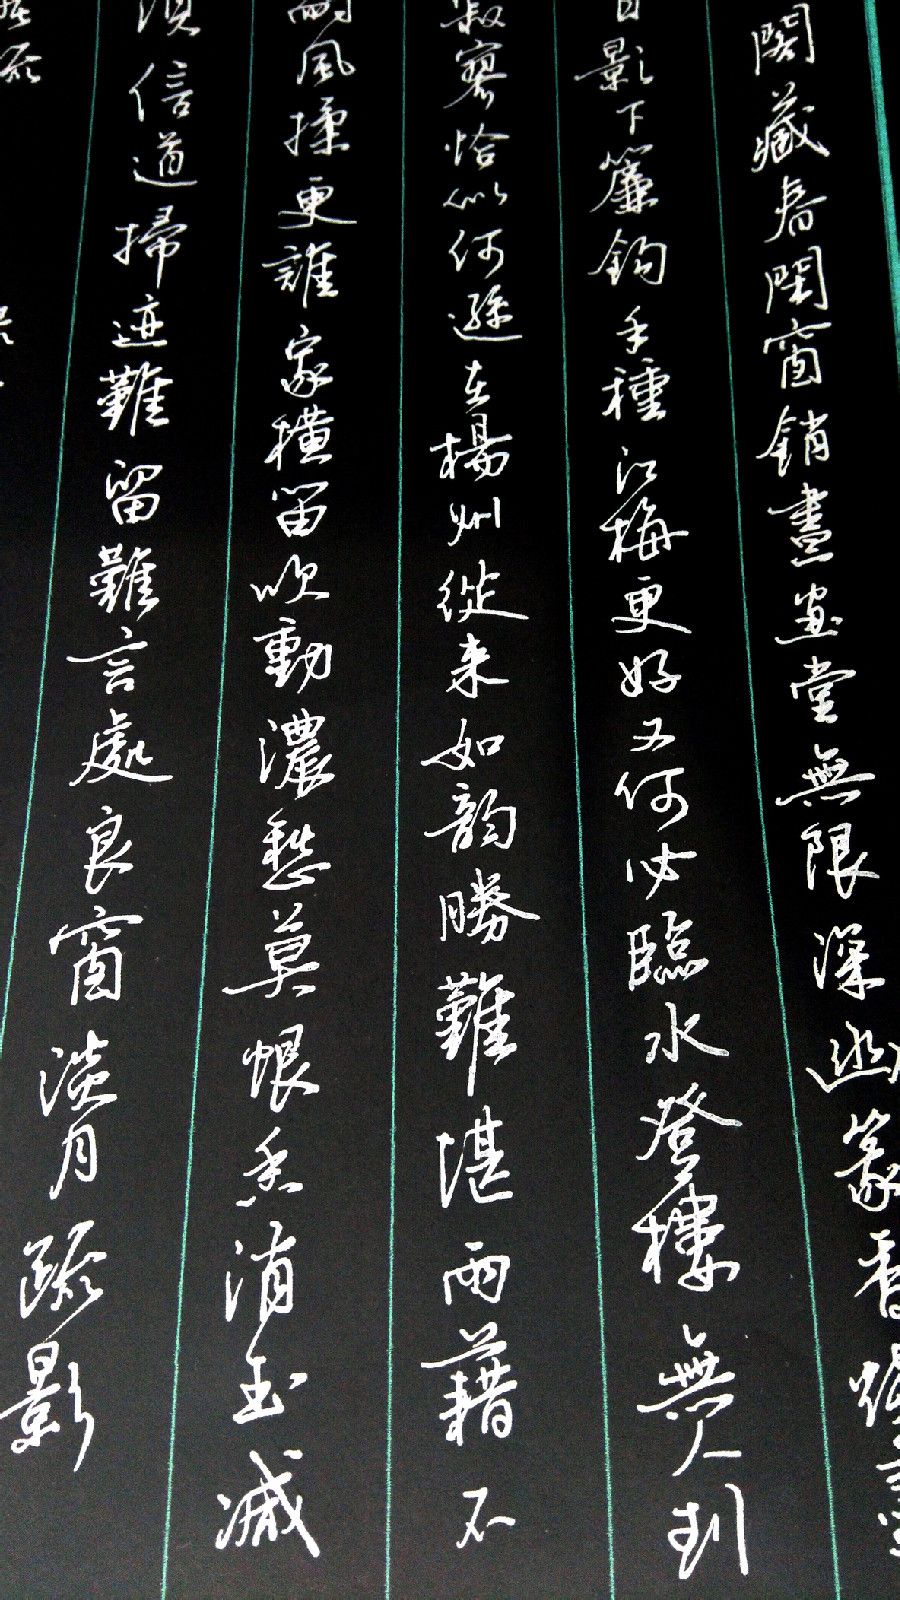 閣藏春閑窗銷晝畫堂無限深幽篆香燒盡
日影下簾鈎手種江梅更好又何必臨水登樓無人到
寂寥恰似何遜在楊州從来如韵勝難堪雨藉不
耐風揉更誰家橫笛吹動濃愁莫恨香消玉減
須信道掃迹難留難言處良窗淡月疏影